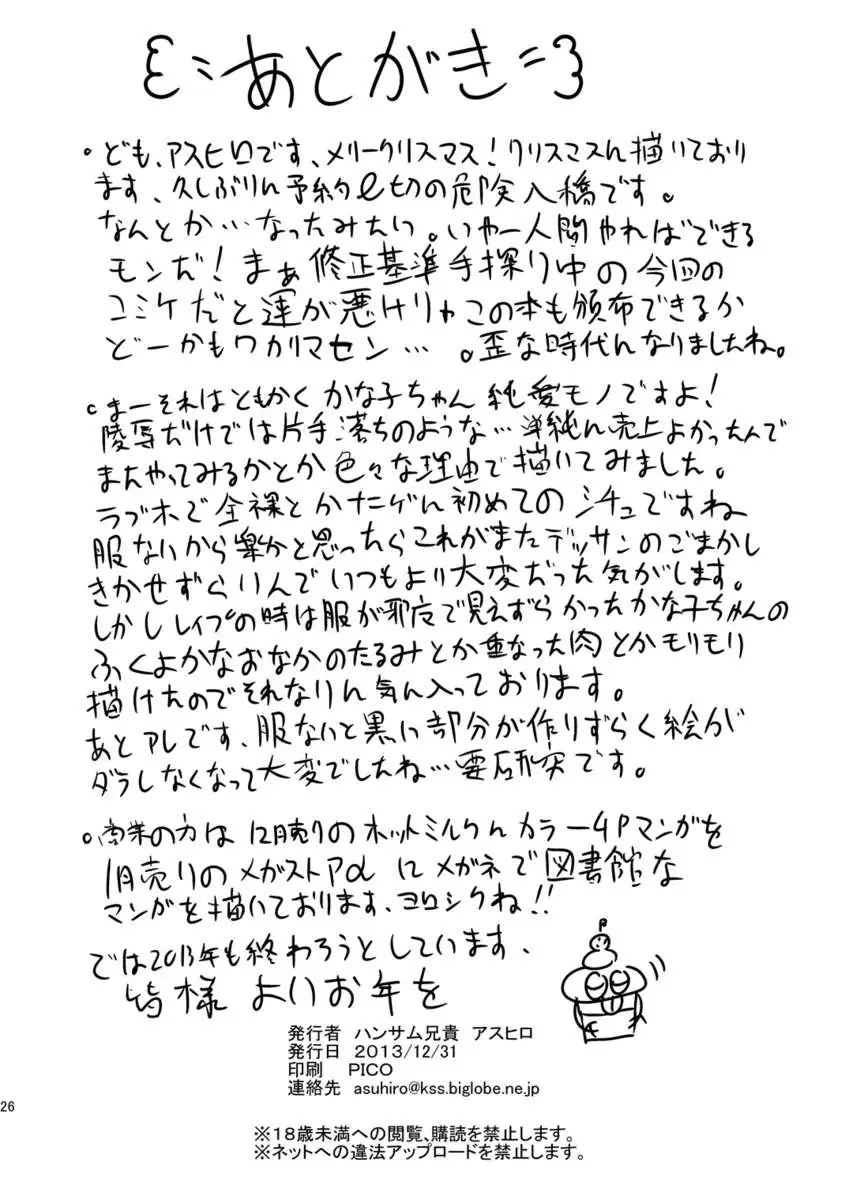 あとがき
。ども、アスヒロです、メリークリスマス!クリスマスに描いており
ます、久しぶりに予約〆切の危険入橋です。
なんとか…なったみたい。いやー人間やればできる
モンだ!まぁ修正基準手探り中の今回の
コミケだと運が悪けりゃこの本も頒布できるか
どーかもワカリマセン…。歪な時代になりましたね。
。まーそれはともかくかな子ちゃん純愛モノですよ!
陵辱だけでは片手落ちのような…単純に売上よかったんで
またやってみるかとか色々な理由で描いてみました。
ラブホで全裸とかなにげに初めてのシチュですね
服ないから楽かと思ったらこれがまたデッサンのごまかし
きかせずらいんでいつもより大変だった気がします。
しかしレイプの時は服が邪魔で見えずらかったかな子ちゃんの
ふくよかなおなかのたるみとか重なった肉とかモリモリ
描けたのでそれなりに気に入っております。
あとアレです、服ないと黒い部分が作りずらく絵が
ダラしなくなって大変でしたね…要研究です。
。商業の方は12月売りのホットミルクにカラー4Pマンガを
1月売りのメガストアαにメガネで図書館な
マンガを描いております、ヨロシクね!!
では2013年も終わろうとしています、
皆様よいお年を
発行者 ハンサム兄貴 アスヒロ
発行日 2013/12/31
印刷 PICO
連絡先 asuhiro@kss.biglobe.ne.jp
26
※18歳未満への閲覧、購読を禁止します。
※ネットへの違法アップロードを禁止します。